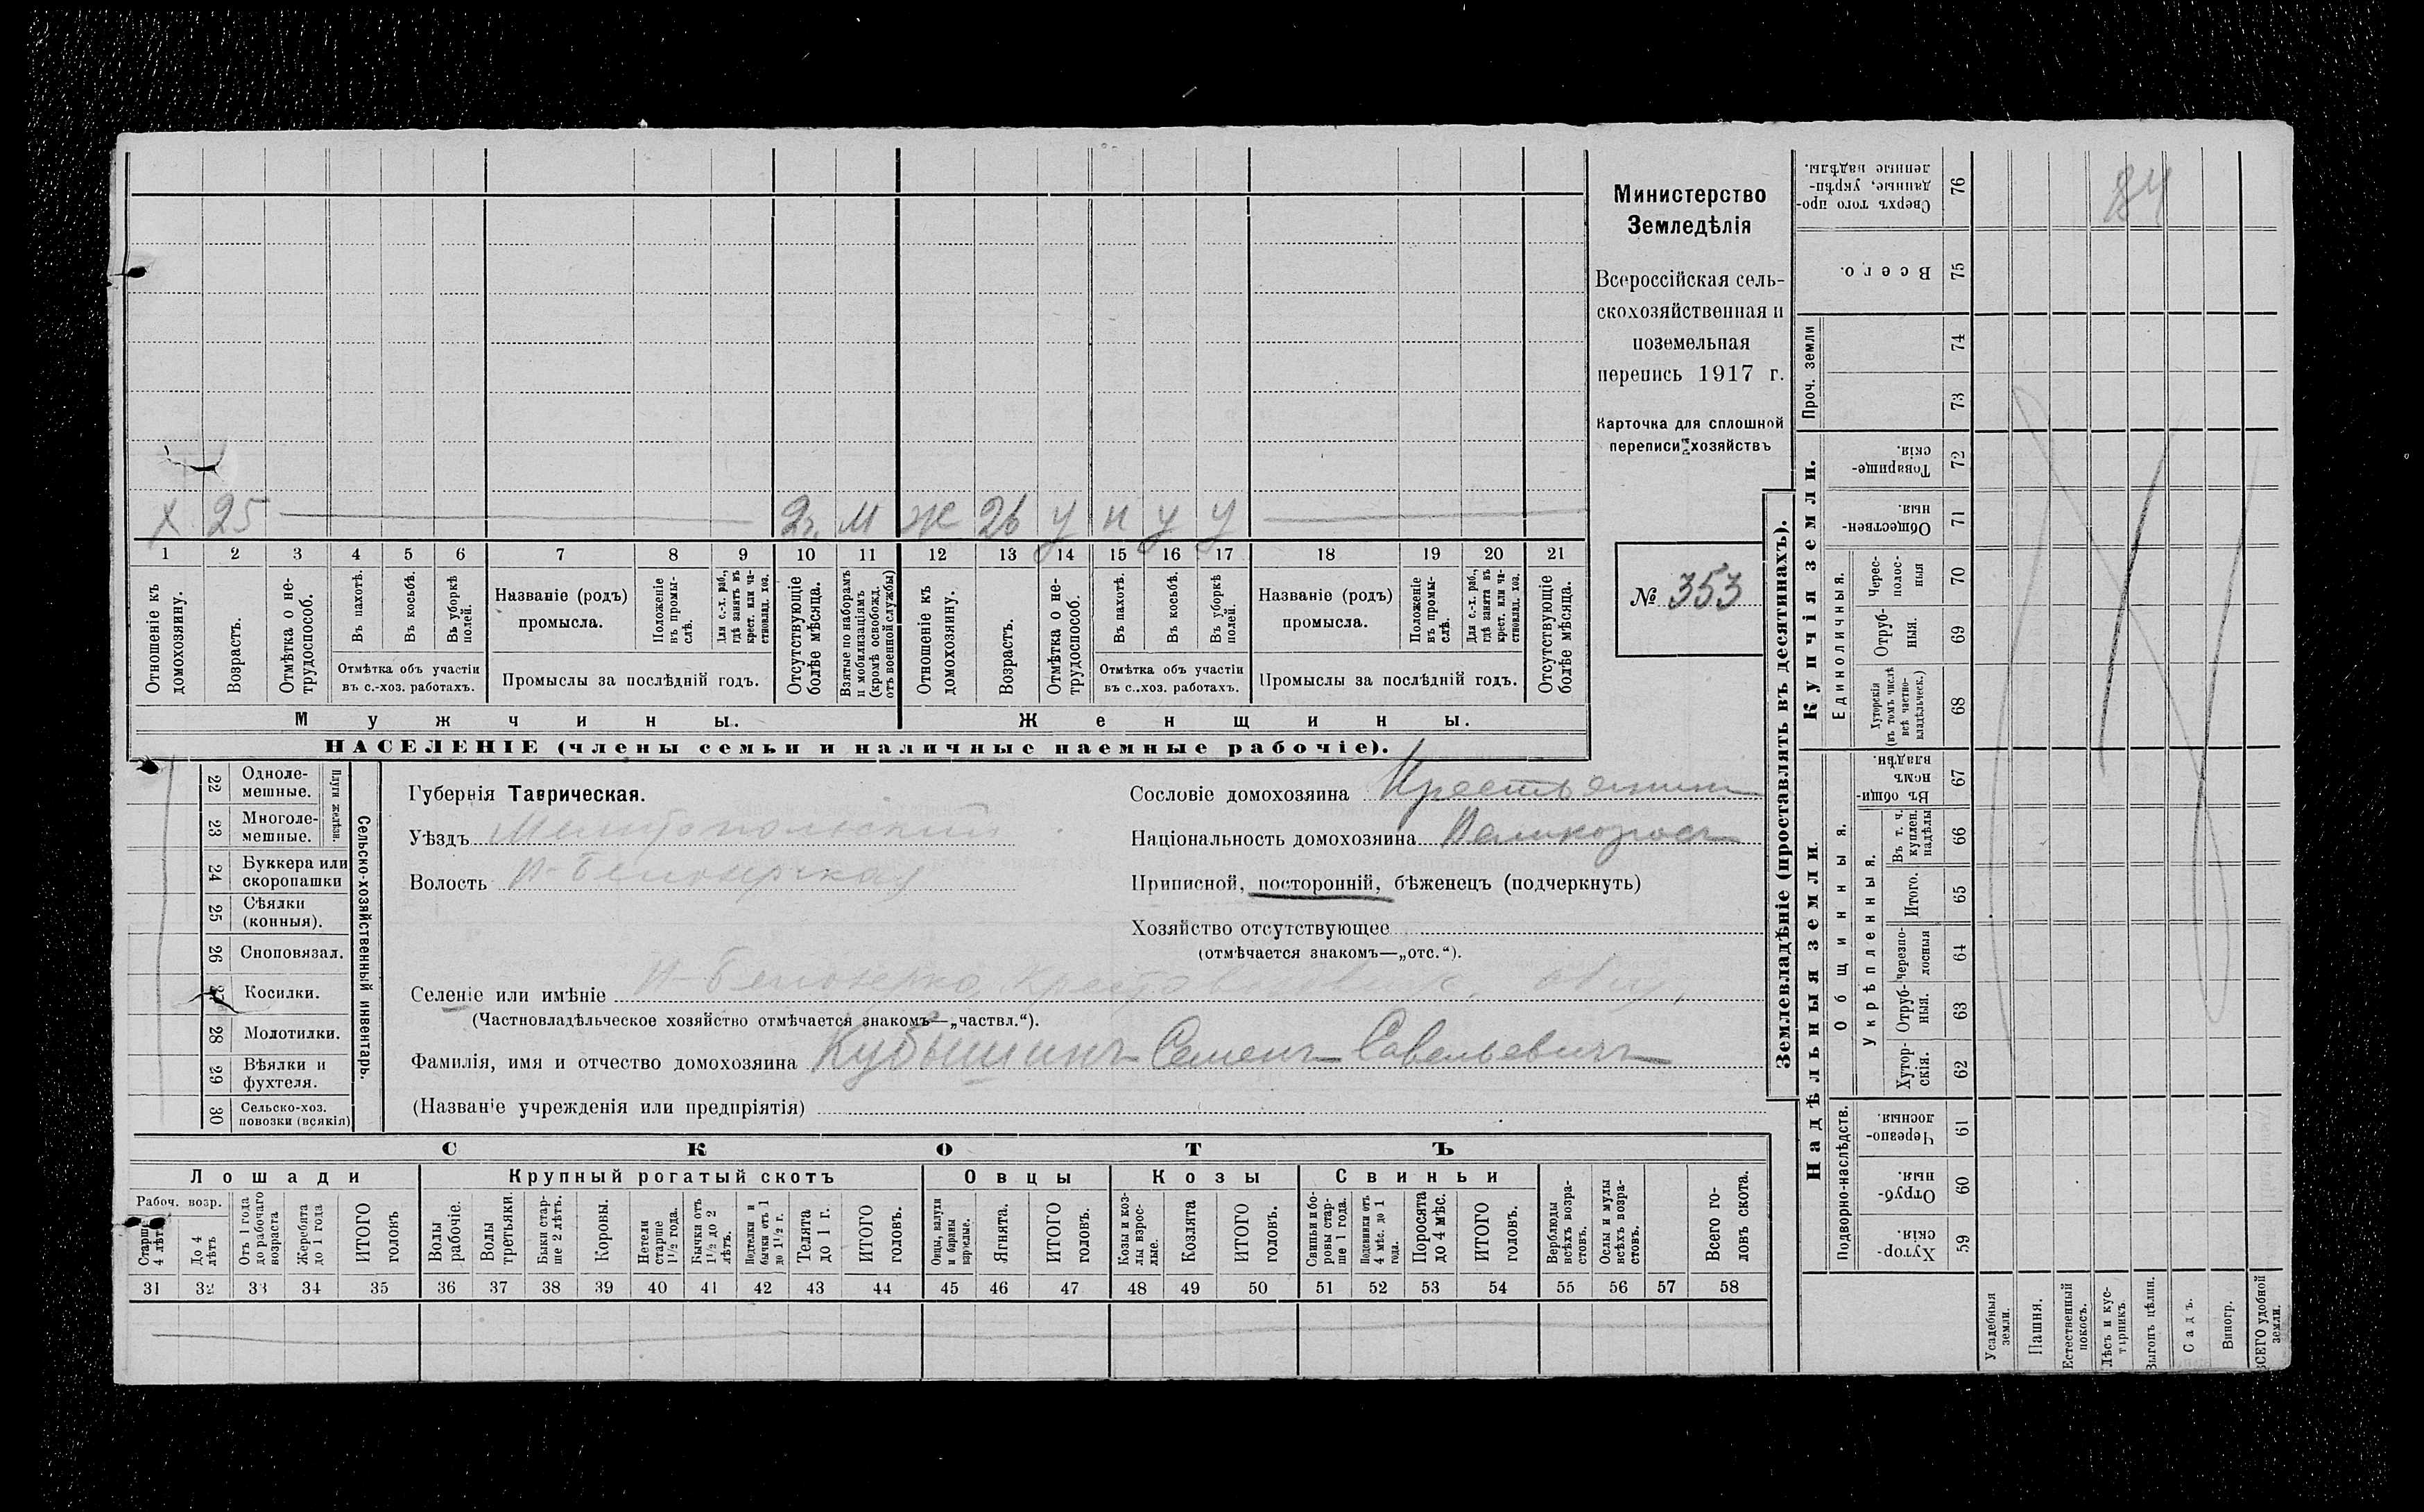 Министерство
Земледѣлія
Всероссійская сель-
скохозяйственная и
поземельная
перепись 1917 г.
Карточка для сплошной
переписи хозяйствъ
№ 353
Х 25 2г. М Ж 26 у п у у
1 2 3 4 5 6 7 8 9 10 11 12 13 14 15 16 17 18 19 20 21
Отношеніе къ домохозяину.
Возрастъ.
Отмѣтка о не-трудоспособ.
Въ пахотѣ.
Въ косьбѣ.
Въ уборкѣ полей.
Отмѣтка объ участіи
въ с.-хоз. работахъ.
Названіе (родъ)
промысла.
Положеніе въ промы-слѣ.
Для с.-х. раб., гдѣ занятъ въ крест. или ча-стновлад. хоз.
Промыслы за послѣдній годъ.
Отсутствующіе болѣе мѣсяца.
Взятые по наборамъ и мобилизаціямъ (кромѣ освобожд. отъ военной службы)
Отношеніе къ домохозяину.
Возрастъ.
Отмѣтка о не-трудоспособ.
Въ пахотѣ.
Въ косьбѣ.
Въ уборкѣ полей.
Отмѣтка объ участіи
въ с.-хоз. работахъ.
Названіе (родъ)
промысла.
Положеніе въ промы-слѣ.
Для с.-х. раб., гдѣ занята въ крест. или ча-стновлад. хоз.
Промыслы за послѣдній годъ.
Отсутствующіе болѣе мѣсяца.
Мужчины. Женщины.
НАСЕЛЕНІЕ (члены семьи и наличные наемные рабочіе).
Сельско-хозяйственный инвентарь.
Плуги желѣзн.
22 Одноле-мешные.
23 Многоле-мешные.
24 Буккера или скоропашки
25 Сѣялки (конныя).
26 Сноповязал.
Косилки.
28 Молотилки.
29 Вѣялки и фухтеля.
30 Сельско-хоз. повозки (всякія)
Губернія Таврическая.
Уѣздъ Мелитопольскій
Волость Н-Белозерская
Селеніе или имѣніе Н-Белозерка
(Частновладѣльческое хозяйство отмѣчается знакомъ—„частвл.“).
Фамилія, имя и отчество домохозяина Кубышинъ Семенъ Савельевичъ
(Названіе учрежденія или предпріятія)
Сословіе домохозяина Крестьянин
Національность домохозяина Великоросъ
Приписной, посторонній, бѣженецъ (подчеркнуть)
Хозяйство отсутствующее
(отмѣчается знакомъ—„отс.“).
СКОТЪ
Лошади Крупный рогатый скотъ Овцы Козы Свиньи
Рабоч. возр.
Старше 4 лѣтъ
До 4 лѣтъ
Отъ 1 года до рабочаго возраста
Жеребята до 1 года
ИТОГО головъ
Волы рабочіе.
Волы третьяки.
Быки стар-ше 2 лѣтъ.
Коровы.
Нетели старше 1½ года.
Бычки отъ 1½ до 2 лѣтъ.
Подтелки и бычки отъ 1 до 1½ г.
Телята до 1 г.
ИТОГО головъ.
Овцы, валухи и бараны взрослые.
Ягнята.
ИТОГО головъ.
Козы и коз-лы взрос-лые.
Козлята
ИТОГО головъ.
Свиньи и бо-ровы стар-ше 1 года.
Подсвинки отъ 4 мѣс. до 1 года.
Поросята до 4 мѣс.
ИТОГО головъ.
Верблюды всѣхъ возра-стовъ.
Ослы и мулы всѣхъ возра-стовъ.
Всего го-ловъ скота.
31 32 33 34 35 36 37 38 39 40 41 42 43 44 45 46 47 48 49 50 51 52 53 54 55 56 57 58
Землевладѣніе (проставлять въ десятинахъ).
84
Сверхъ того про-данные, укрѣп-ленные надѣлы. 76
Всего. 75
Проч. земли
74
73
Купчія земли.
Товарище-скія. 72
Обществен-ныя. 71
Единоличныя.
Черес-полос-ныя 70
Отруб-ныя. 69
Хуторскія (въ томъ числѣ всѣ частно-владѣльческ.) 68
Надѣльныя земли.
Въ общин-номъ владѣн. 67
Общинныя.
Укрѣпленныя.
Въ т. ч. куплен. надѣлы 66
Итого. 65
Черезпо-лосныя 64
Отруб-ныя. 63
Хутор-скія. 62
Подворно-наслѣдств.
Черезпо-лосныя. 61
Отруб-ныя. 60
Хутор-скія. 59
Усадебныя земли.
Пашня.
Естественный покосъ.
Лѣсъ и кус-тарникъ.
Выгонъ цѣлин.
Садъ.
Виногр.
ВСЕГО удобной земли.